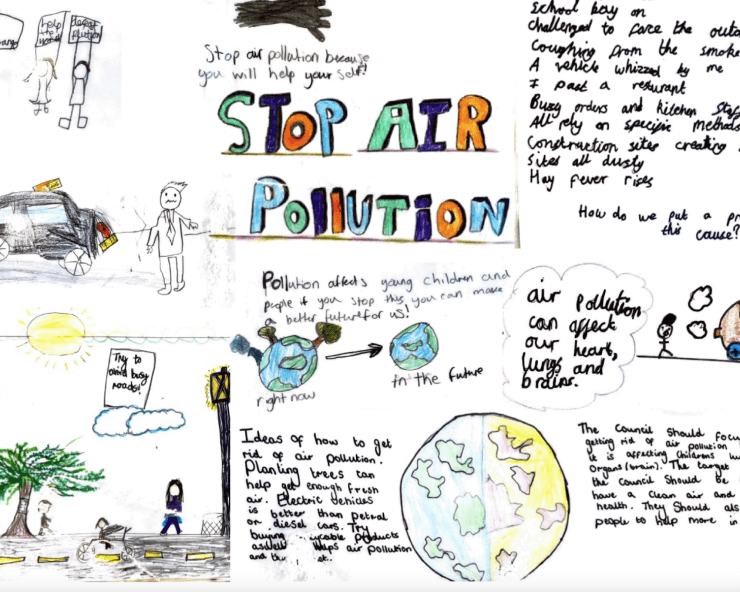 help
the
world
Stop air pollution because
you will help your self!
STOP AIR
POLLUTION
School boy on
challenged to face the outd
Coughing from the smoke
A vehicle whizzed by me
I past a resturant
Busy orders and kitchen staff
All rely on specific methods
Construction sites creating
Sites all dusty
Hay fever rises
How do we put a pr
this cause?
Pollution affects young children and
people if you stop this, you can make
a better future for us!
right now
In the future
air pollution
can affect
our heart,
lungs and
brains.
Try to
avoid busy
roads!
Ideas of how to get
rid of air pollution.
Planting trees can
help get enough fresh
air. Electric vehicles
is better than petral
or diesel cars. Try
buying products
aswell helps air pollution
and the
The Council should focu
getting rid of air pollution
it is affecting childrens
Organs (brain). The target
the council should be
have a clean air and
health. They should als
people to help more in